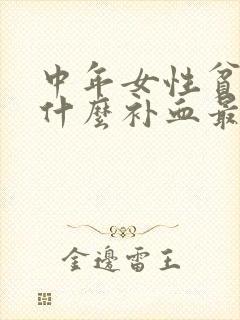 中年女性貧
什麼补血最
金邊雷王